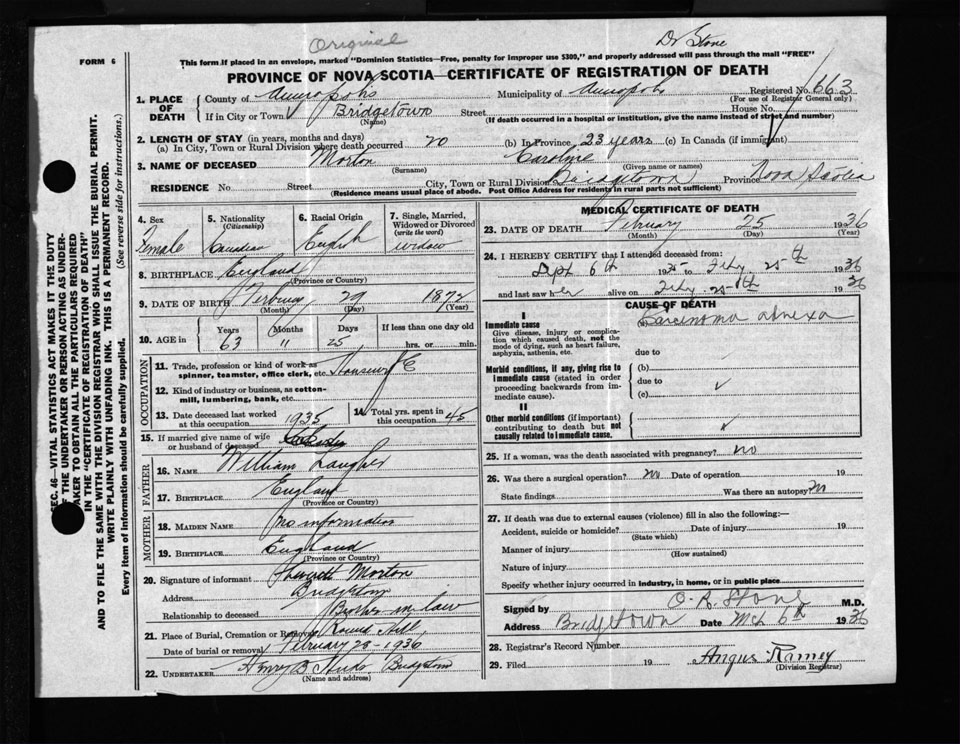 Original
Dr Stone
FORM 6
This form if placed in an envelope, marked "Dominion Statistics—Free, penalty for improper use $300," and properly addressed will pass through the mail "FREE"
PROVINCE OF NOVA SCOTIA—CERTIFICATE OF REGISTRATION OF DEATH
1. PLACE OF DEATH County of Annapolis Municipality of Annapolis Registered No. 663
(For use of Registrar General only)
If in City or Town Bridgetown Street House No.
(Name) (If death occurred in a hospital or institution, give name instead of street and number)
2. LENGTH OF STAY (in years, months and days)
(a) In City, Town or Rural Division where death occurred 20 (b) In Province 23 years (c) In Canada (if immigrant)
3. NAME OF DECEASED Morton Caroline
(Surname) (Given name or names)
RESIDENCE No. Street City, Town or Rural Division Bridgetown Province Nova Scotia
(Residence means usual place of abode. Post Office Address for residents in rural parts not sufficient)
4. Sex Female
5. Nationality (Citizenship) Canadian
6. Racial Origin English
7. Single, Married, Widowed or Divorced (write the word) widow
8. BIRTHPLACE England
(Province or Country)
9. DATE OF BIRTH 29 1872
(Month) (Day) (Year)
10. AGE in Years Months Days If less than one day old
63 11 25 hrs. or min.
OCCUPATION
11. Trade, profession or kind of work as spinner, teamster, office clerk, etc.
12. Kind of industry or business, as cotton-mill, lumbering, bank, etc.
13. Date deceased last worked at this occupation 1935
14. Total yrs. spent in this occupation 45
15. If married give name of wife or husband of deceased
FATHER
16. NAME William
17. BIRTHPLACE England
(Province or Country)
MOTHER
18. MAIDEN NAME No information
19. BIRTHPLACE England
(Province or Country)
20. Signature of informant Morton
Address Bridgetown
Relationship to deceased Brother in law
21. Place of Burial, Cremation or Removal Round Hill
Date of burial or removal February 28-1936
22. UNDERTAKER Henry B Hicks Bridgetown
(Name and address)
MEDICAL CERTIFICATE OF DEATH
23. DATE OF DEATH February 25 1936
(Month) (Day) (Year)
24. I HEREBY CERTIFY that I attended deceased from:
Sept 6th 1935 to Feby. 25th 1936
and last saw her alive on Feby. 25th 1936
CAUSE OF DEATH
I
Immediate cause (a) Carcinoma adnexa
Give disease, injury or complication which caused death, not the mode of dying, such as heart failure, asphyxia, asthenia, etc.
due to
Morbid conditions, if any, giving rise to immediate cause (stated in order proceeding backwards from immediate cause).
(b)
due to
(c)
II
Other morbid conditions (if important) contributing to death but not causally related to immediate cause.
25. If a woman, was the death associated with pregnancy? no
26. Was there a surgical operation? no Date of operation 19
State findings Was there an autopsy? no
27. If death was due to external causes (violence) fill in also the following:—
Accident, suicide or homicide? Date of injury 19
(State which)
Manner of injury
(How sustained)
Nature of injury
Specify whether injury occurred in industry, in home, or in public place
Signed by O. R. Stone M.D.
Address Bridgetown Date Mch 6th 1936
28. Registrar's Record Number
29. Filed 19 Angus Ramey
(Division Registrar)
SEC. 46—VITAL STATISTICS ACT MAKES IT THE DUTY
OF THE UNDERTAKER OR PERSON ACTING AS UNDERTAKER TO OBTAIN ALL THE PARTICULARS REQUIRED
IN THE "CERTIFICATE OF REGISTRATION OF DEATH"
AND TO FILE THE SAME WITH THE DIVISION REGISTRAR WHO SHALL ISSUE THE BURIAL PERMIT.
WRITE PLAINLY WITH UNFADING INK. THIS IS A PERMANENT RECORD.
Every item of information should be carefully supplied. (See reverse side for instructions.)